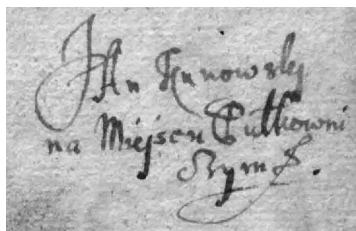 Jan Kunowsky
na Miejscu Pułkowni